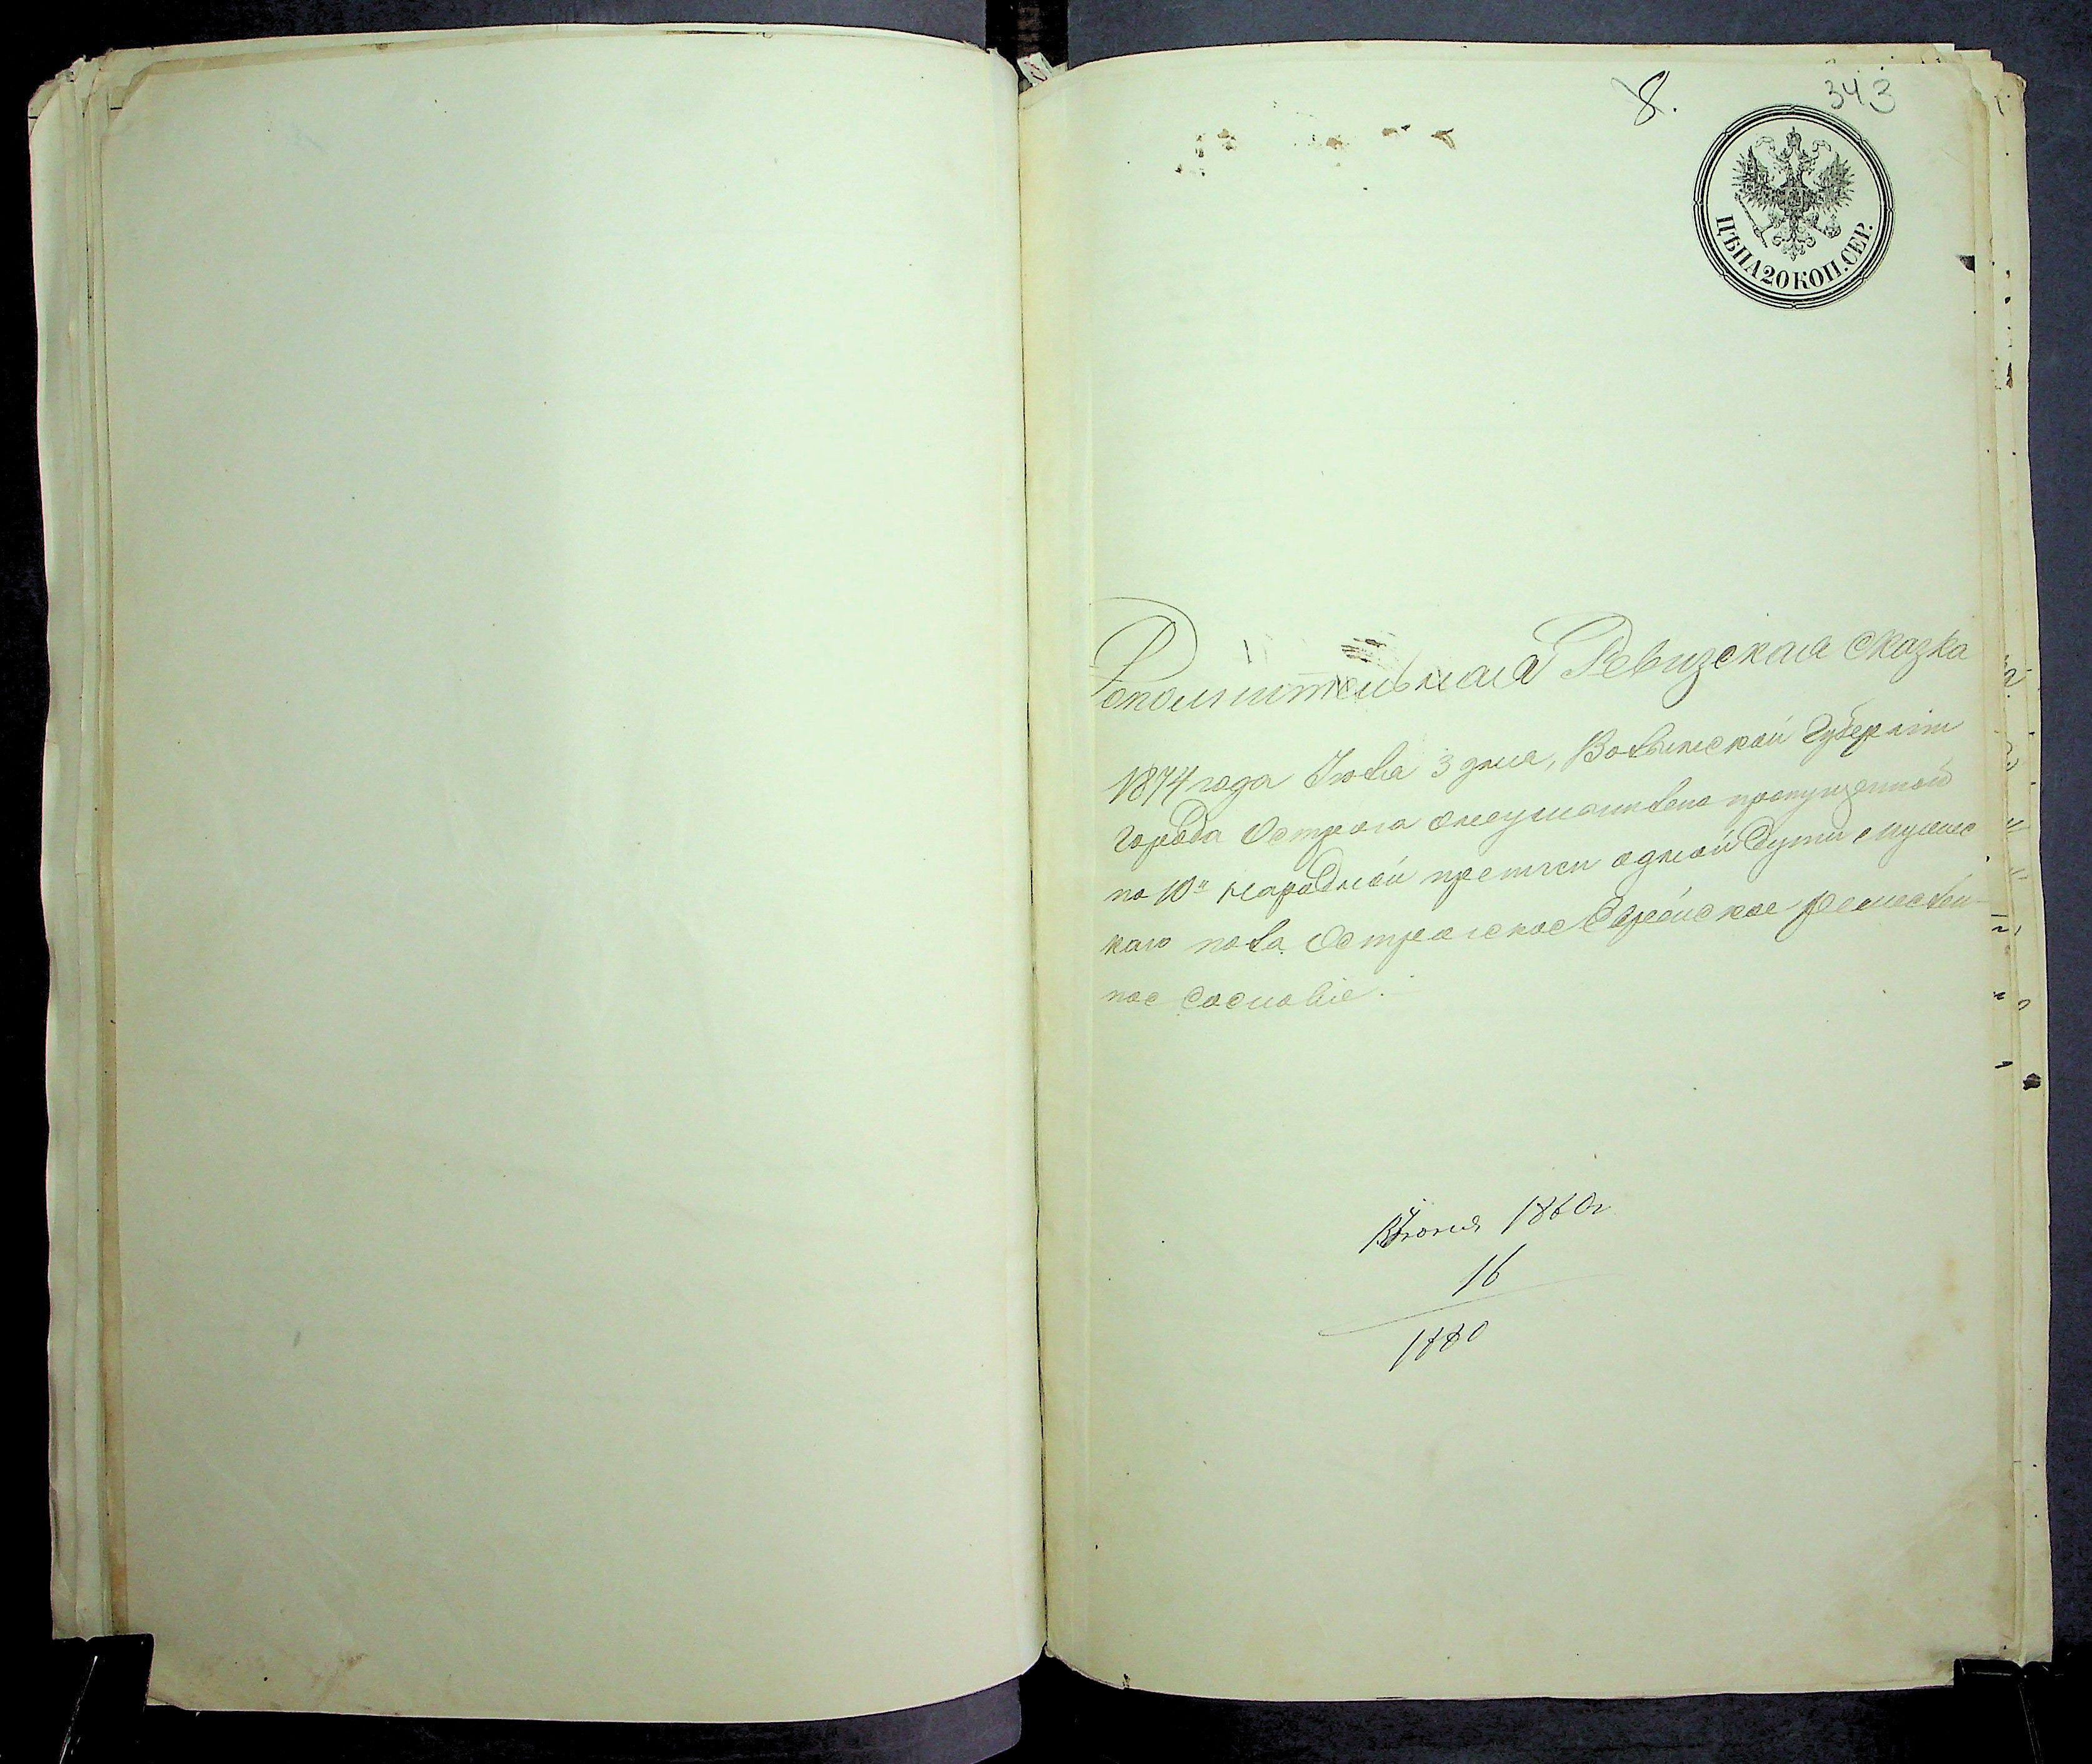 8.
343
ЦѢНА 20 КОП. СЕР.
Дополнительная Ревизская сказка
1874 года Іюля 3 дня, Волынской Губерніи
города Острога о неумышленно пропущенной
по 10й народной переписи одной души мужес
каго пола Острогское Еврейское ремеслен-
ное сословіе.
Іюня 1860г
16
1880